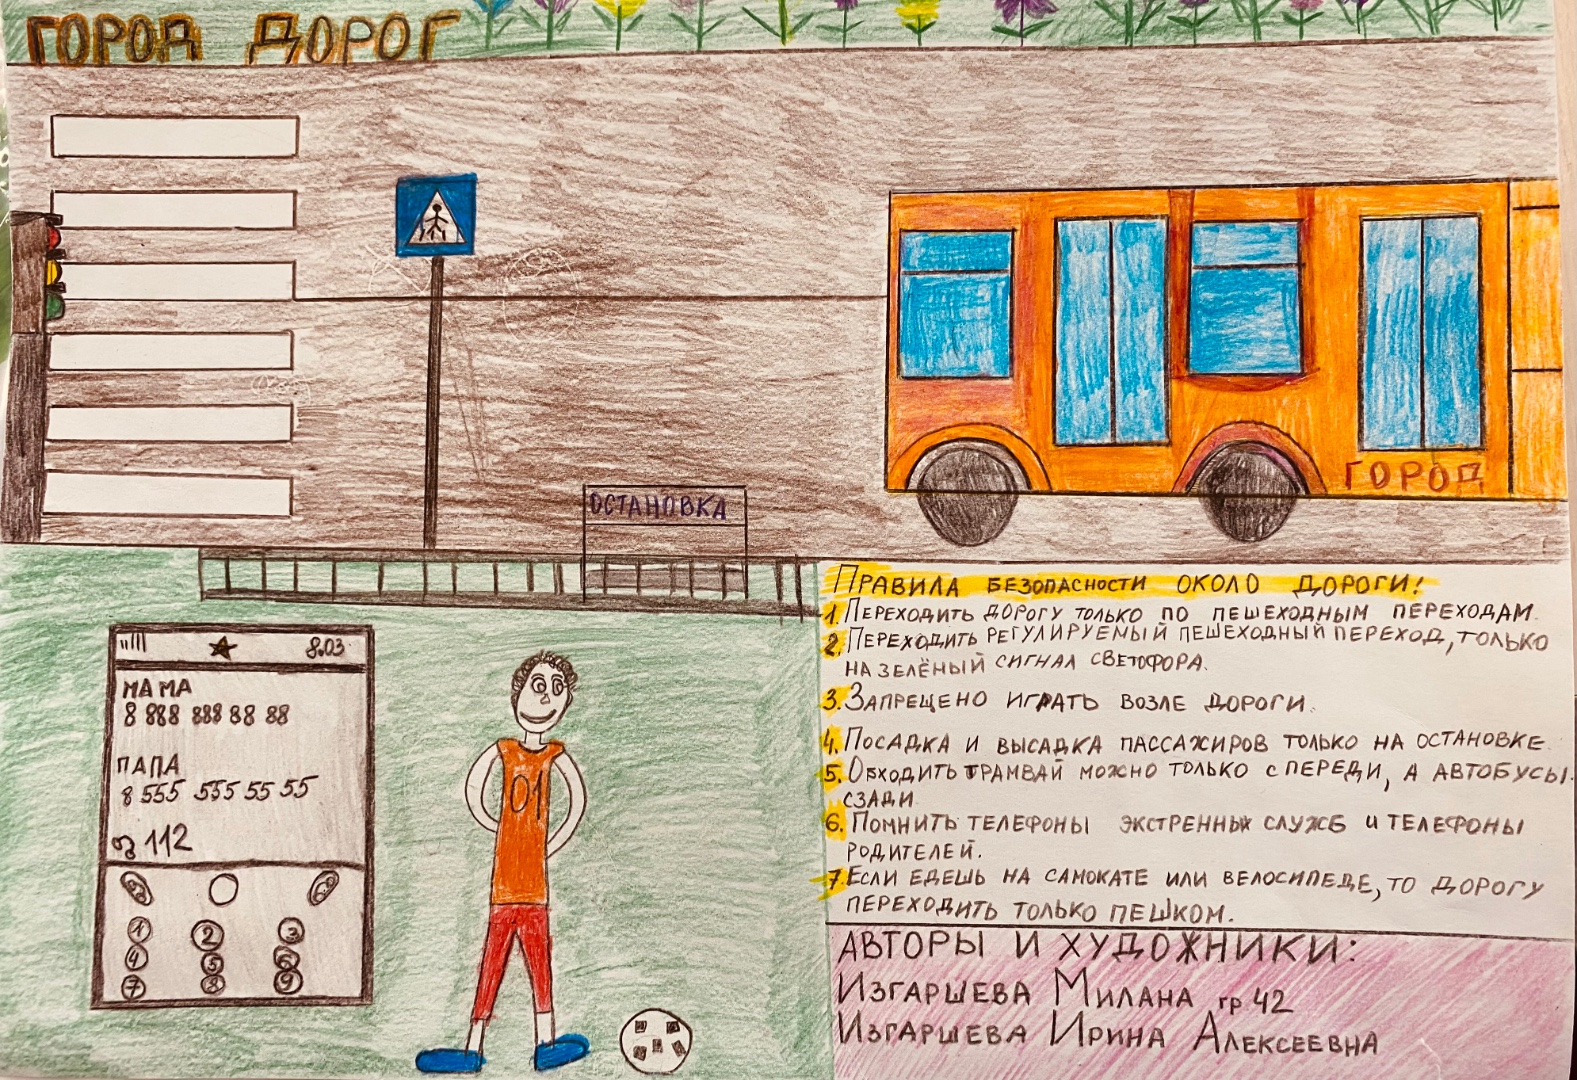 ГОРОД ДОРОГ
ОСТАНОВКА
ГОРОД
ПРАВИЛА БЕЗОПАСНОСТИ ОКОЛО ДОРОГИ!
1. ПЕРЕХОДИТЬ ДОРОГУ ТОЛЬКО ПО ПЕШЕХОДНЫМ ПЕРЕХОДАМ.
2. ПЕРЕХОДИТЬ РЕГУЛИРУЕМЫЙ ПЕШЕХОДНЫЙ ПЕРЕХОД, ТОЛЬКО
НА ЗЕЛЁНЫЙ СИГНАЛ СВЕТОФОРА.
3. ЗАПРЕЩЕНО ИГРАТЬ ВОЗЛЕ ДОРОГИ.
4. ПОСАДКА И ВЫСАДКА ПАССАЖИРОВ ТОЛЬКО НА ОСТАНОВКЕ.
5. ОБХОДИТЬ ТРАМВАЙ МОЖНО ТОЛЬКО С ПЕРЕДИ, А АВТОБУСЫ
СЗАДИ.
6. ПОМНИТЬ ТЕЛЕФОНЫ ЭКСТРЕННЫХ СЛУЖБ И ТЕЛЕФОНЫ
РОДИТЕЛЕЙ.
7. ЕСЛИ ЕДЕШЬ НА САМОКАТЕ ИЛИ ВЕЛОСИПЕДЕ, ТО ДОРОГУ
ПЕРЕХОДИТЬ ТОЛЬКО ПЕШКОМ.
АВТОРЫ И ХУДОЖНИКИ:
ИЗГАРШЕВА МИЛАНА гр 42
ИЗГАРШЕВА ИРИНА АЛЕКСЕЕВНА
8.03
МАМА
8 888 888 88 88
ПАПА
8 555 555 55 55
112
1 2 3
4 5 6
7 8 9
01